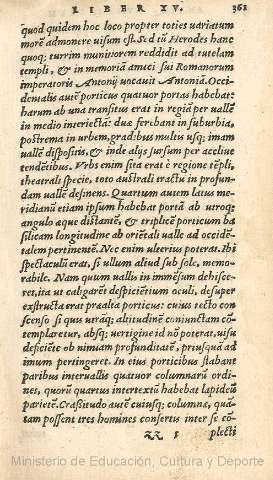 LIBER XV. 361
quod quidem hoc loco propter toties uariatum
morẽ admonere uisum est. Sed iũ Herodes hanc
quoq; turrim munitiorem reddidit ad tutelam
templi, & in memoriã amici sui Romanorum
imperatoris Antonij uocauit Antoniã. Occi
dentalis autẽ porticus quatuor portas habebat:
harum ab una transitus erat in regiã per uallẽ
in medio interiectã: duæ ferebant in suburbia,
postrema in urbem, gradibus multis usq; imam
uallẽ dispositis, & inde alijs sursum per accliue
tendẽtibus. Vrbs enim sita erat è regione tẽpli,
theatrali specie, toto australi tractu in profun-
dam uallẽ desinens. Quartum autem latus me-
ridianũ etiam ipsum habebat portã ab utroq;
angulo æque distantẽ, & triplicẽ porticum ba
silicam longitudine ab orientali ualle ad occidẽ-
talem pertinentẽ. Nec enim ulterius poterat. Ibi
spectaculũ erat, si ullum aliud sub sole, memo-
rabile. Nam quum uallis in immẽsum dehisce-
ret, ita ut caligarẽt despiciẽtium oculi, desuper
exstructa erat præalta porticus: cuius tecto con
scenso si quis utrãq; altitudinẽ coniunctam cõ
templaretur, absq; uertigine id nõ poterat, uisu
deficiẽte ob nimiam profunditatẽ, priusquã ad
imum pertingeret. In eius porticibus stabant
paribus interuallis quatuor columnarũ ordi-
nes, quorũ quartus intertextũ habebat lapideũ
parietẽ. Crassitudo autẽ cuiusq; columnæ, quã-
tam possent tres homines consertis inter se cõ
zz 1 plecti
Ministerio de Educación, Cultura y Deporte